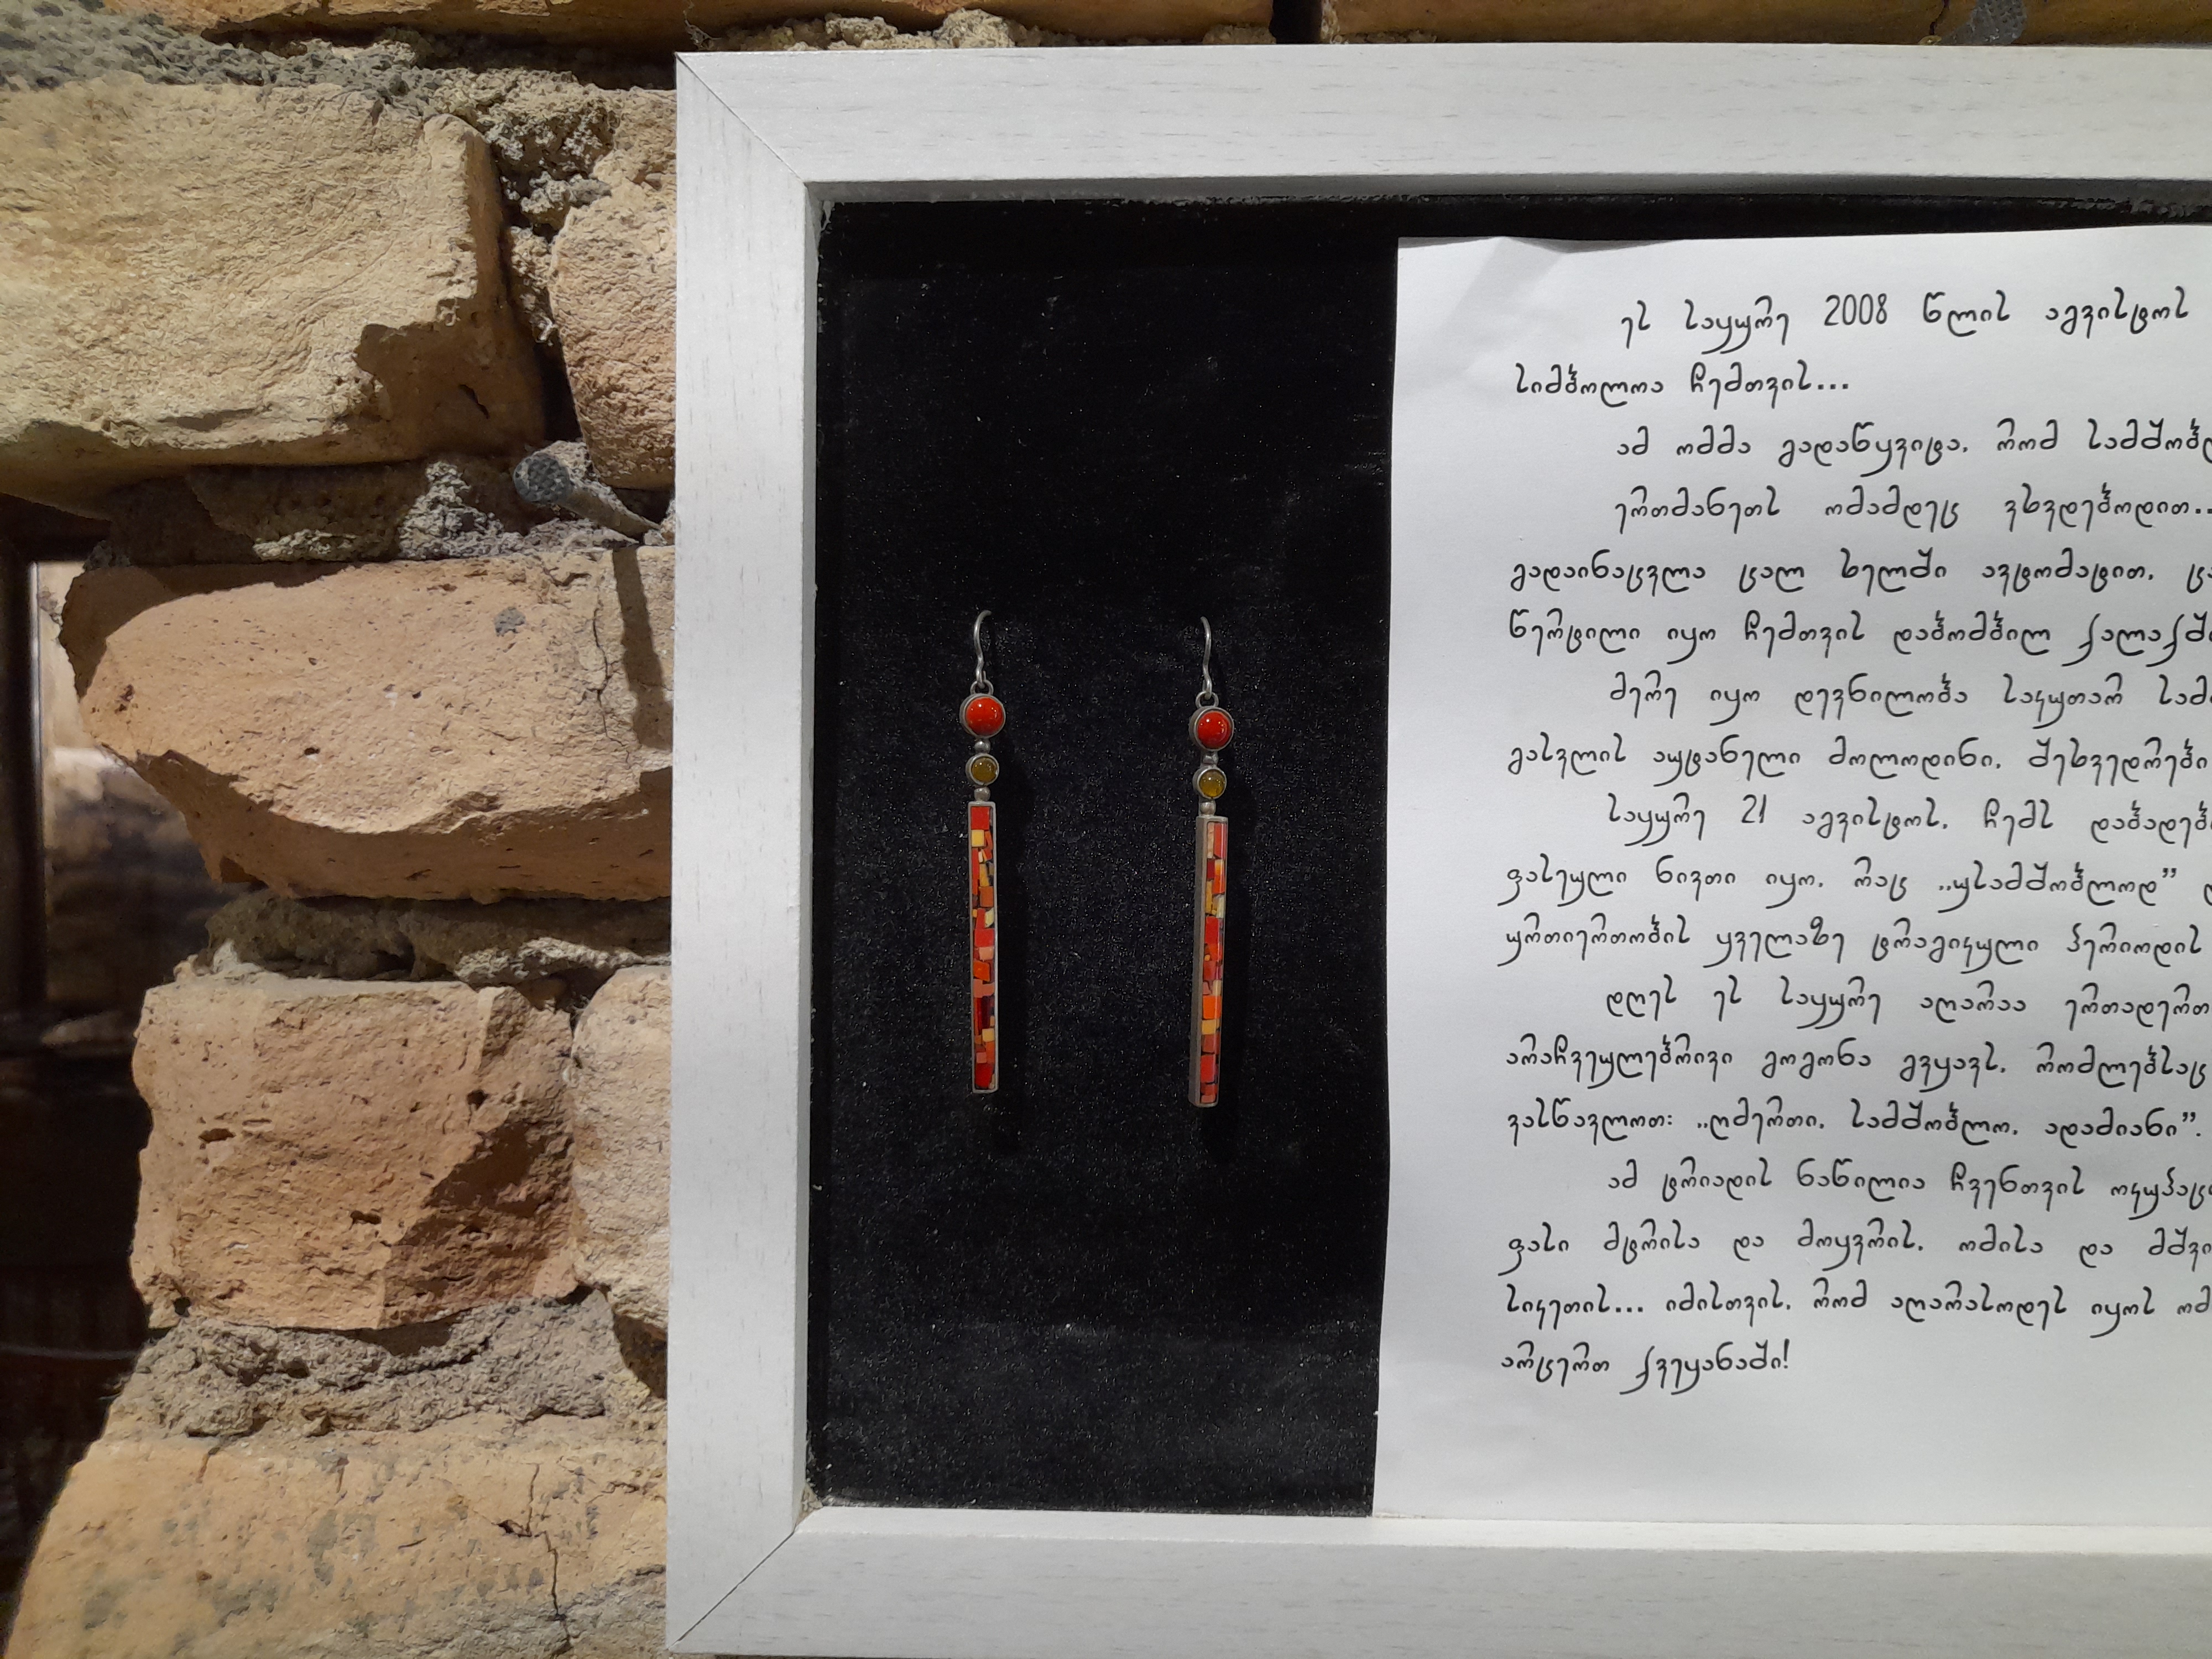 ეს საყურე 2008 წლის აგვისტოს
სიმბოლოა ჩემთვის...
ამ ომმა გადაწყვიტა, რომ სამშობლ
ერთმანეთს ომამდეც ვხვდებოდით..
გადაინაცვლა ცალ ხელში ავტომატით, ცა
წერტილი იყო ჩემთვის დაბომბილ ქალაქში
მერე იყო დევნილობა საკუთარ სამ
გასვლის აუტანელი მოლოდინი, შეხვედრები
საყურე 21 აგვისტოს, ჩემს დაბადებ
ფასეული ნივთი იყო, რაც „უსამშობლოდ” დ
ურთიერთობის ყველაზე ტრაგიკული პერიოდის
დღეს ეს საყურე აღარაა ერთადერთ
არაჩვეულებრივი გოგონა გვყავს, რომლებსაც
ვასწავლოთ: „ღმერთი, სამშობლო, ადამიანი”.
ამ ტრიადის ნაწილია ჩვენთვის ოკუპაც
ფასი მტრისა და მოყვრის, ომისა და მშვი
სიკეთის... იმისთვის, რომ აღარასოდეს იყოს ომ
არცერთ ქვეყანაში!